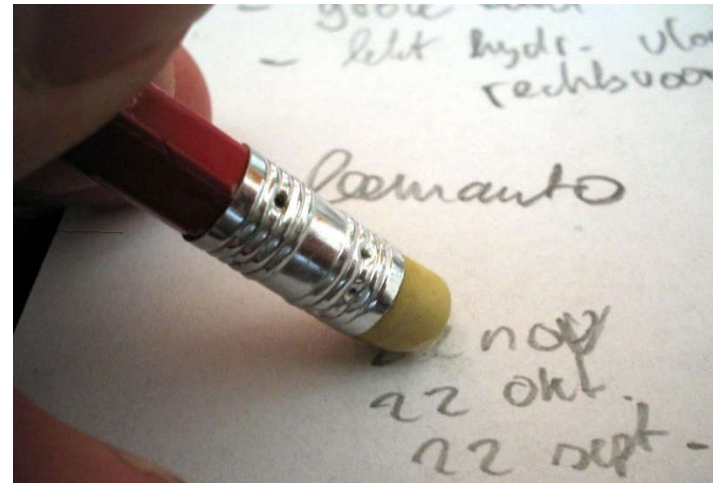 - grote
- lekt hydr. vloe
rechtsvoor
leenauto
22 nov
22 okt.
22 sept.-